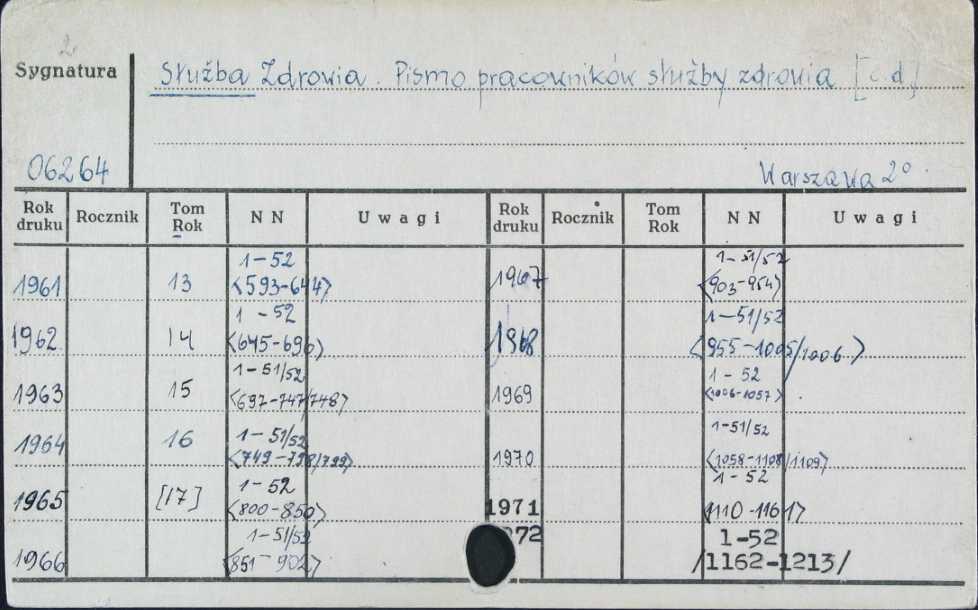 2
Sygnatura
Służba Zdrowia. Pismo pracowników służby zdrowia [c.d]
06264
Warszawa 2°
Rok druku Rocznik Tom Rok NN Uwagi Rok druku Rocznik Tom Rok NN Uwagi
1961 13 1-52 <593-644> 1967 1-51/52 <903-954>
1962 14 1-52 <645-696> 1968 1-51/52 <955-1005/1006>
1963 15 1-51/52 <697-747/748> 1969 1-52 <1006-1057>
1964 16 1-51/52 <749-798/799> 1970 1-51/52 <1058-1108/1109>
1965 [17] 1-52 <800-850> 1971 1-52 <1110-1161>
1966 1-51/52 <851-902> 72 1-52 /1162-1213/